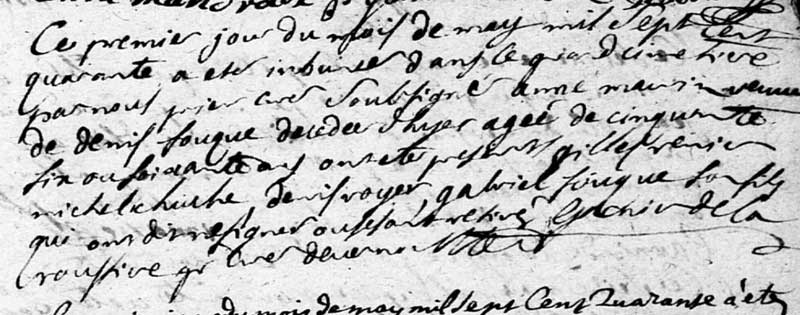 Ce premier jour du mois de may mil sept cent
quarante a eté inhumée dans le grand cimetiere
par nous prier curé soubsigné anne mausin veuve
de denis fouque decedée d'hyer agée de cinquante
six ou soixante ans ont eté presents gilles renier
michel huché denis royer gabriel fouque son fils
qui ont dit ne signer
roussiere pr curé de
du mois de may mil sept Cent Quarante a eté